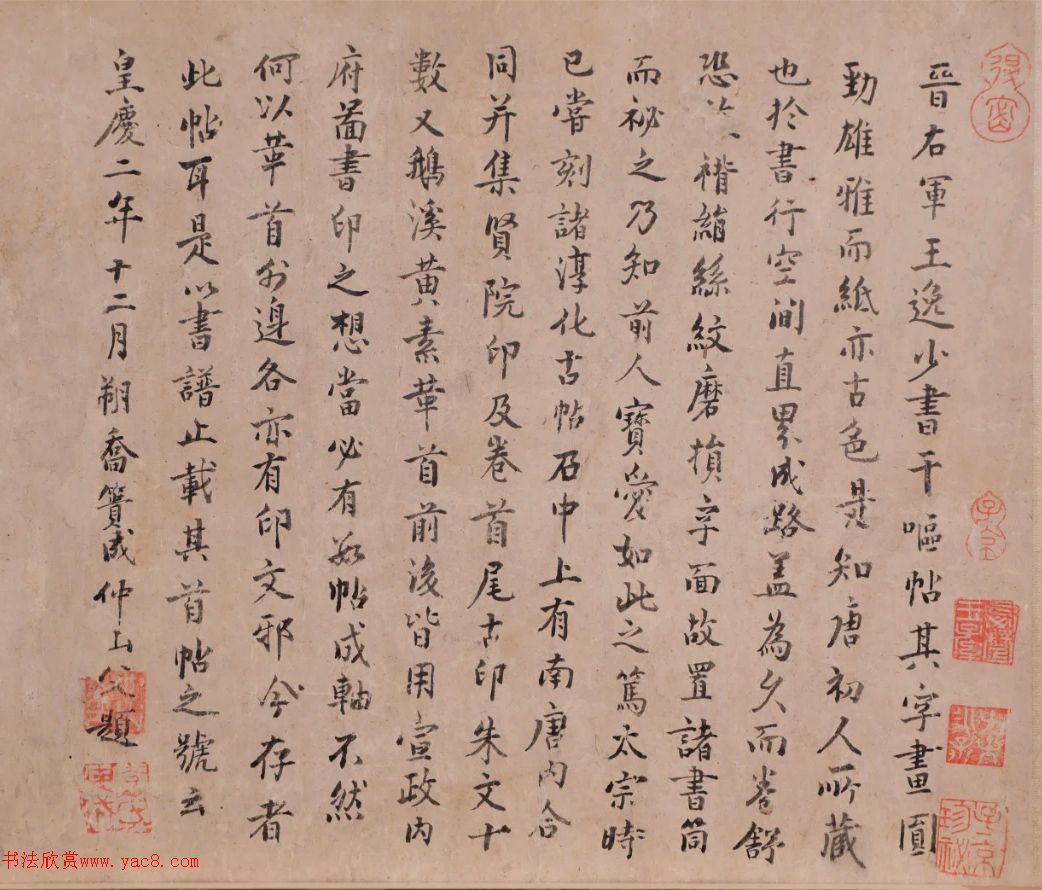 晉右軍王逸少書干嘔帖其字畫圓
勁雄雅而紙亦古色是知唐初人所藏
也於書行空間直界成路蓋為久而卷舒
恐 褙縮絲紋磨損字面故置諸書筒
而祕之乃知前人寶愛如此之篤太宗時
已嘗刻諸淳化古帖石中上有南唐内合
同并集賢院印及卷首尾古印朱文十
數又鵝溪黄素華首前後皆用宣政内
府啚書印之想當必有數帖成軸不然
何以華首外邉各亦有印文邪今存者
此帖耳是以書譜止載其首帖之號云
皇慶二年十二月朔喬簣成仲山父題
书法欣赏www.yac8.com